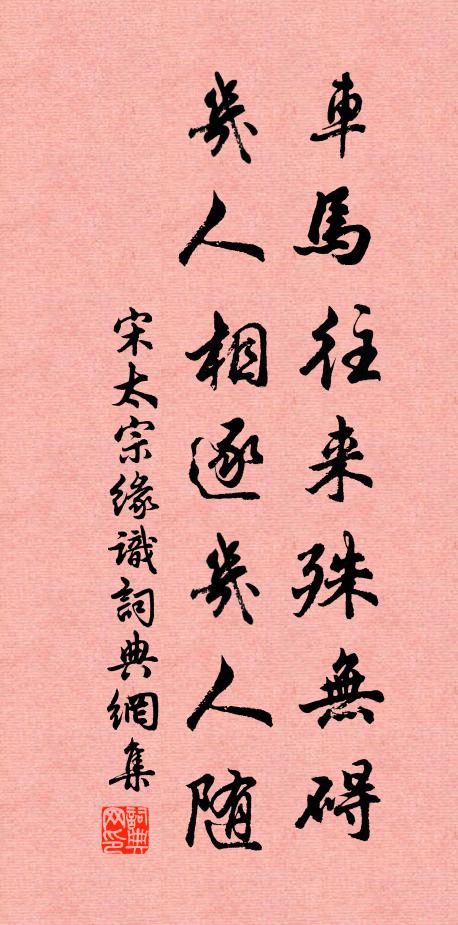 車馬往来殊無碍
幾人相逐幾人随
宋太宗緣識詞典網集
詞典网印